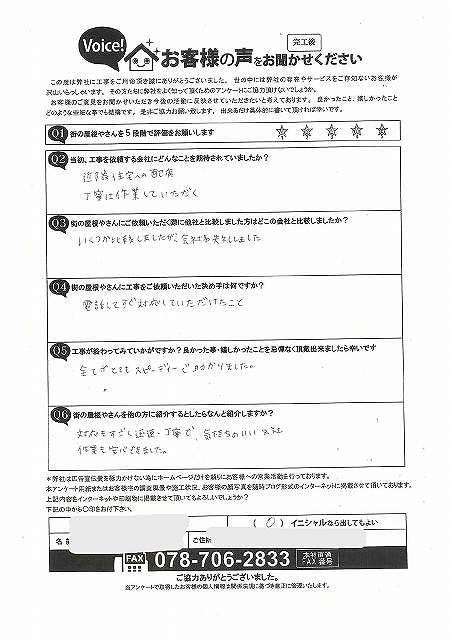 Voice!
お客様の声をお聞かせください
完工後
この度は弊社に工事をご用命頂き誠にありがとうございました。世の中には弊社の存在やサービスをご存知ないお客様が
沢山いらっしゃいます。その方たちに弊社をよく知って頂くためのアンケートにご協力頂けないでしょうか。
お客様のご意見をお聞かせいただき今後の活動に反映させていただきたいと考えております。良かったこと、嬉しかったこと
どのような些細な事でも結構です。是非ご協力お願い致します。出来るだけ具体的に書いて頂ければ幸いです。
Q1 街の屋根やさんを5段階で評価をお願いします
Q2 当初、工事を依頼する会社にどんなことを期待されていましたか?
近隣住宅への配慮
丁寧に作業していただく
Q3 街の屋根やさんにご依頼いただく際に他社と比較しました方はどこの会社と比較しましたか?
いくつか比較しましたが、会社名失念しました
Q4 街の屋根やさんに工事をご依頼いただいた決め手は何ですか?
電話してすぐ対応していただけたこと
Q5 工事が終わってみていかがですか?良かった事・嬉しかったことを忌憚なく頂戴出来ましたら幸いです
全てがとてもスピーディーで助かりました。
Q6 街の屋根やさんを他の方に紹介するとしたらなんと紹介しますか?
対応もすごく迅速・丁寧で、気持ちのいい会社
作業も安心できました。
*弊社は広告宣伝費を極力かけない為にホームページだけを頼りにお客様への営業活動を行っております。
本アンケート用紙またはお客様宅の調査風景や施工状況、お客様の顔写真を随時ブログ形式のインターネットに掲載させて頂いております。
上記内容をインターネットや印刷物に掲載させて頂いてもよろしいでしょうか?
下記の中から〇印をお付け下さい。
( O ) イニシャルなら出してもよい
名前
ご住所
FAX 078-706-2833 本社直通 FAX番号
ご協力ありがとうございました。
当アンケートで取得したお客様の個人情報は関係法規に基づき厳正に管理いたします。